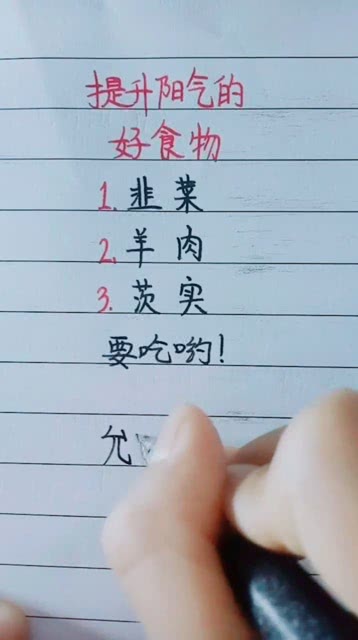 提升阳气的
好食物
1. 韭菜
2. 羊肉
3. 茨实
要吃哟!
允